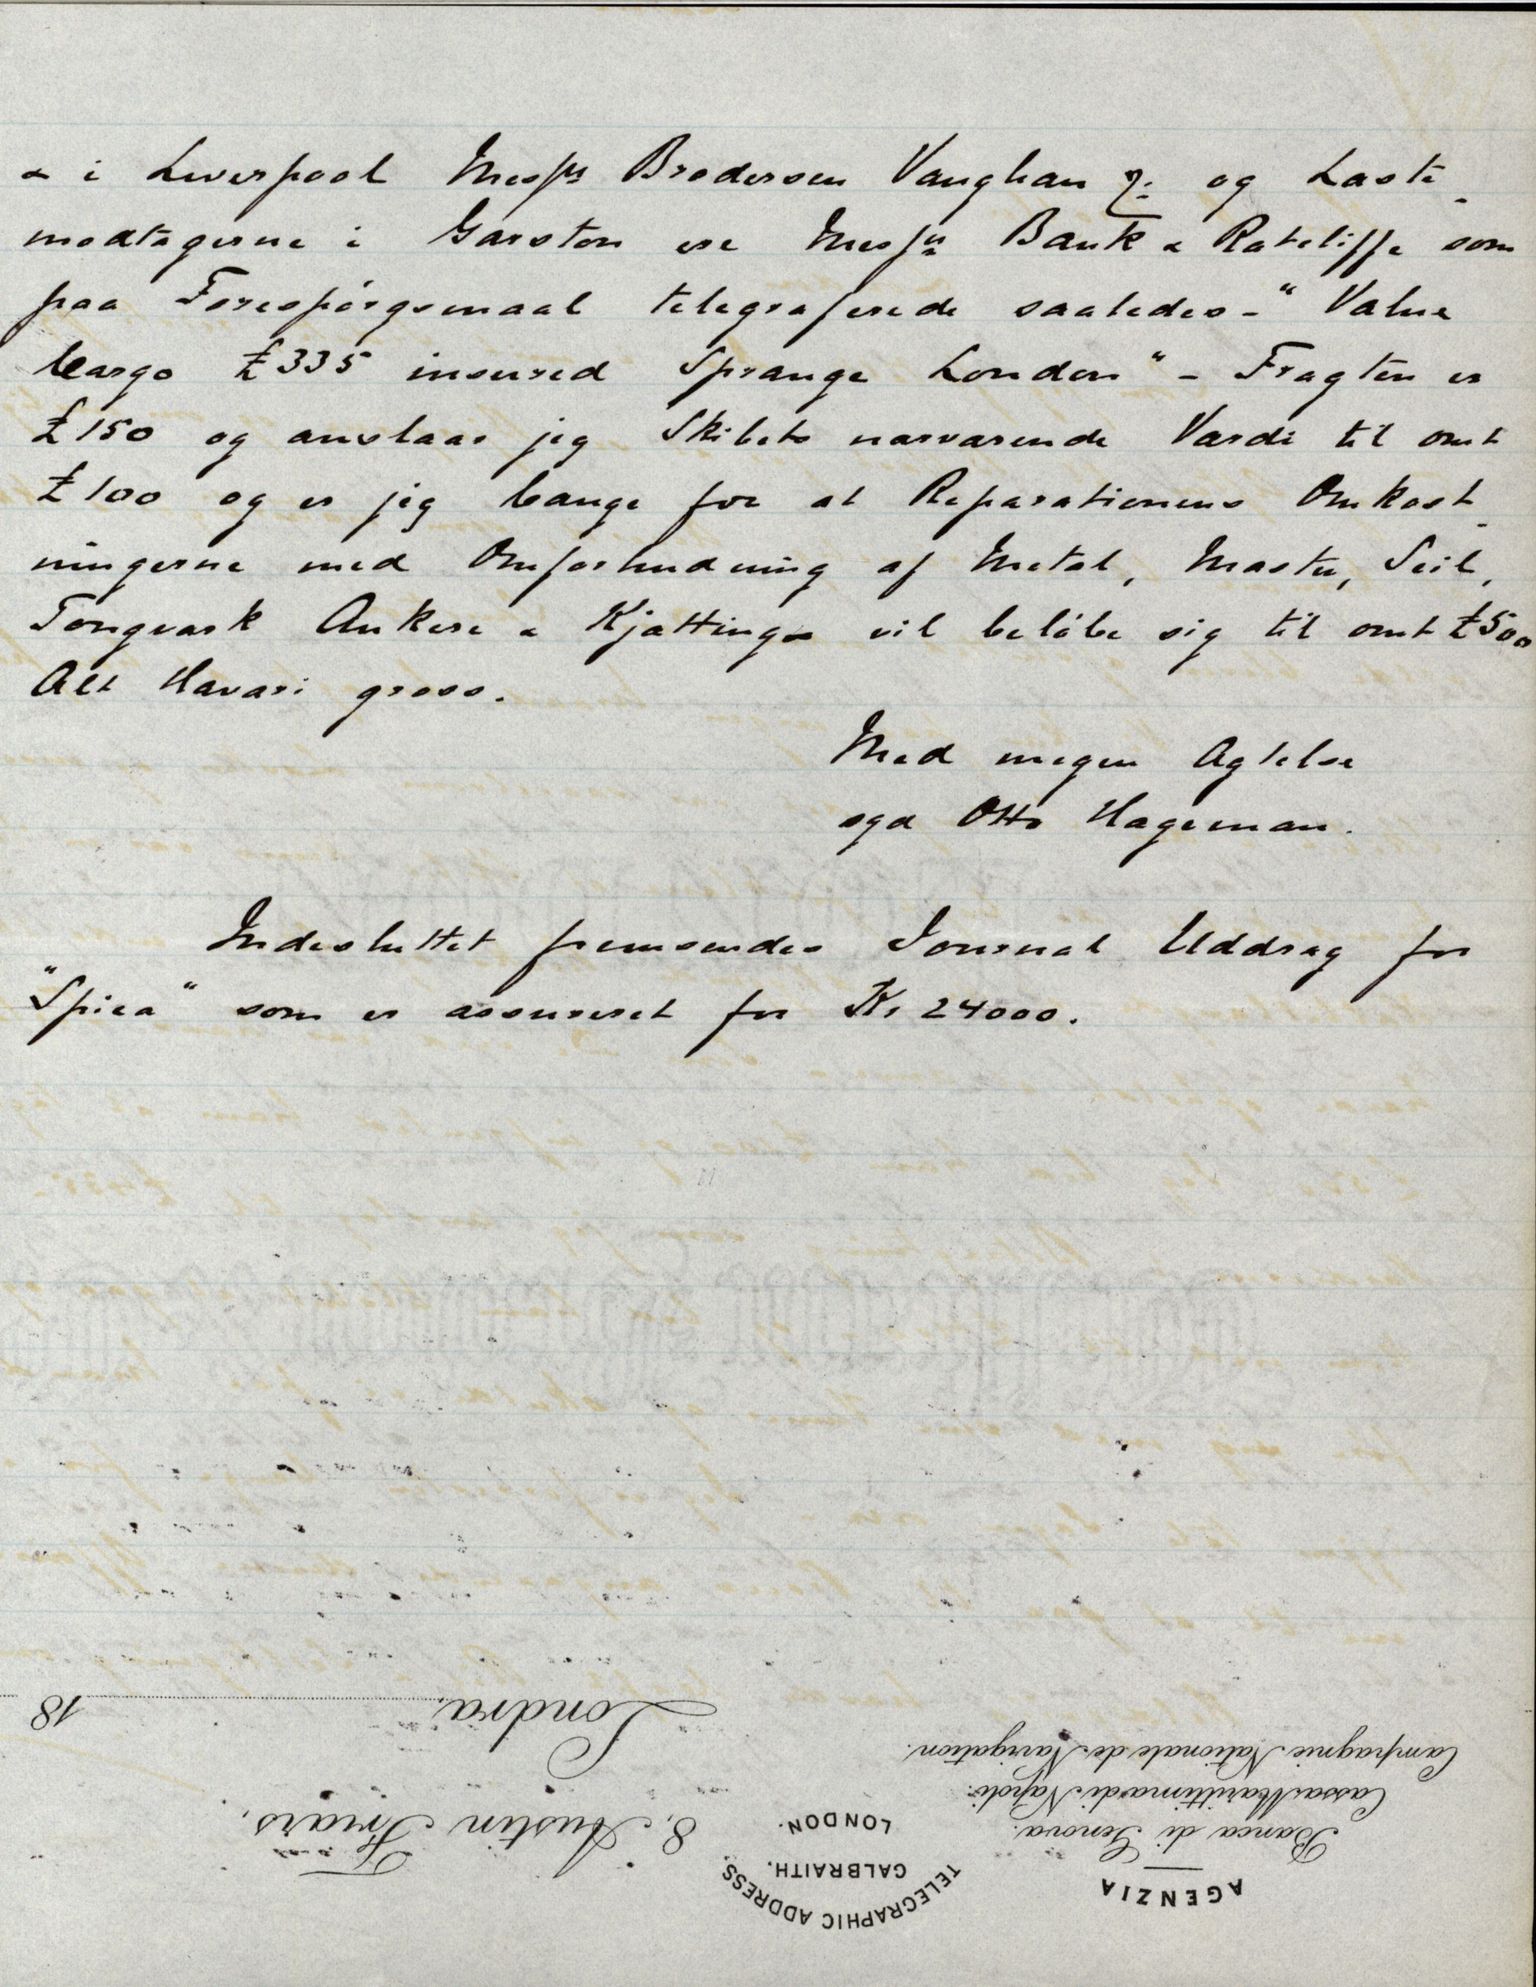 & i Liverpool Messrs Brodersen Vaughan og Laste-
modtagerne i Garston ere Messrs Bank & Ratcliffe som
paa Forespörgsmaal telegraferede saaledes - "Value
Cargo £335 insured Sprange London" - Fragten er
£150 og anslaar jeg Skibets nærværende Værdi til omt
£100 og er jeg bange for at Reparationens Omkost-
ningerne med Omforhudning af Metal, Master, Seil,
Tougværk Ankere & Kjættinge vil belöbe sig til omt £500
Alt Havari gross.
Med megen Agtelse
sgd Otto Hageman.
Indesluttet fremsendes Journal Uddrag for
"Spica" som er assureret for Kr 24000.
AGENZIA
Banca di Genova.
Cassa Marittima di Napoli.
Compagnie Nationale de Navigation.
TELEGRAPHIC ADDRESS.
GALBRAITH.
LONDON.
8, Austin Friars,
Londra, 18